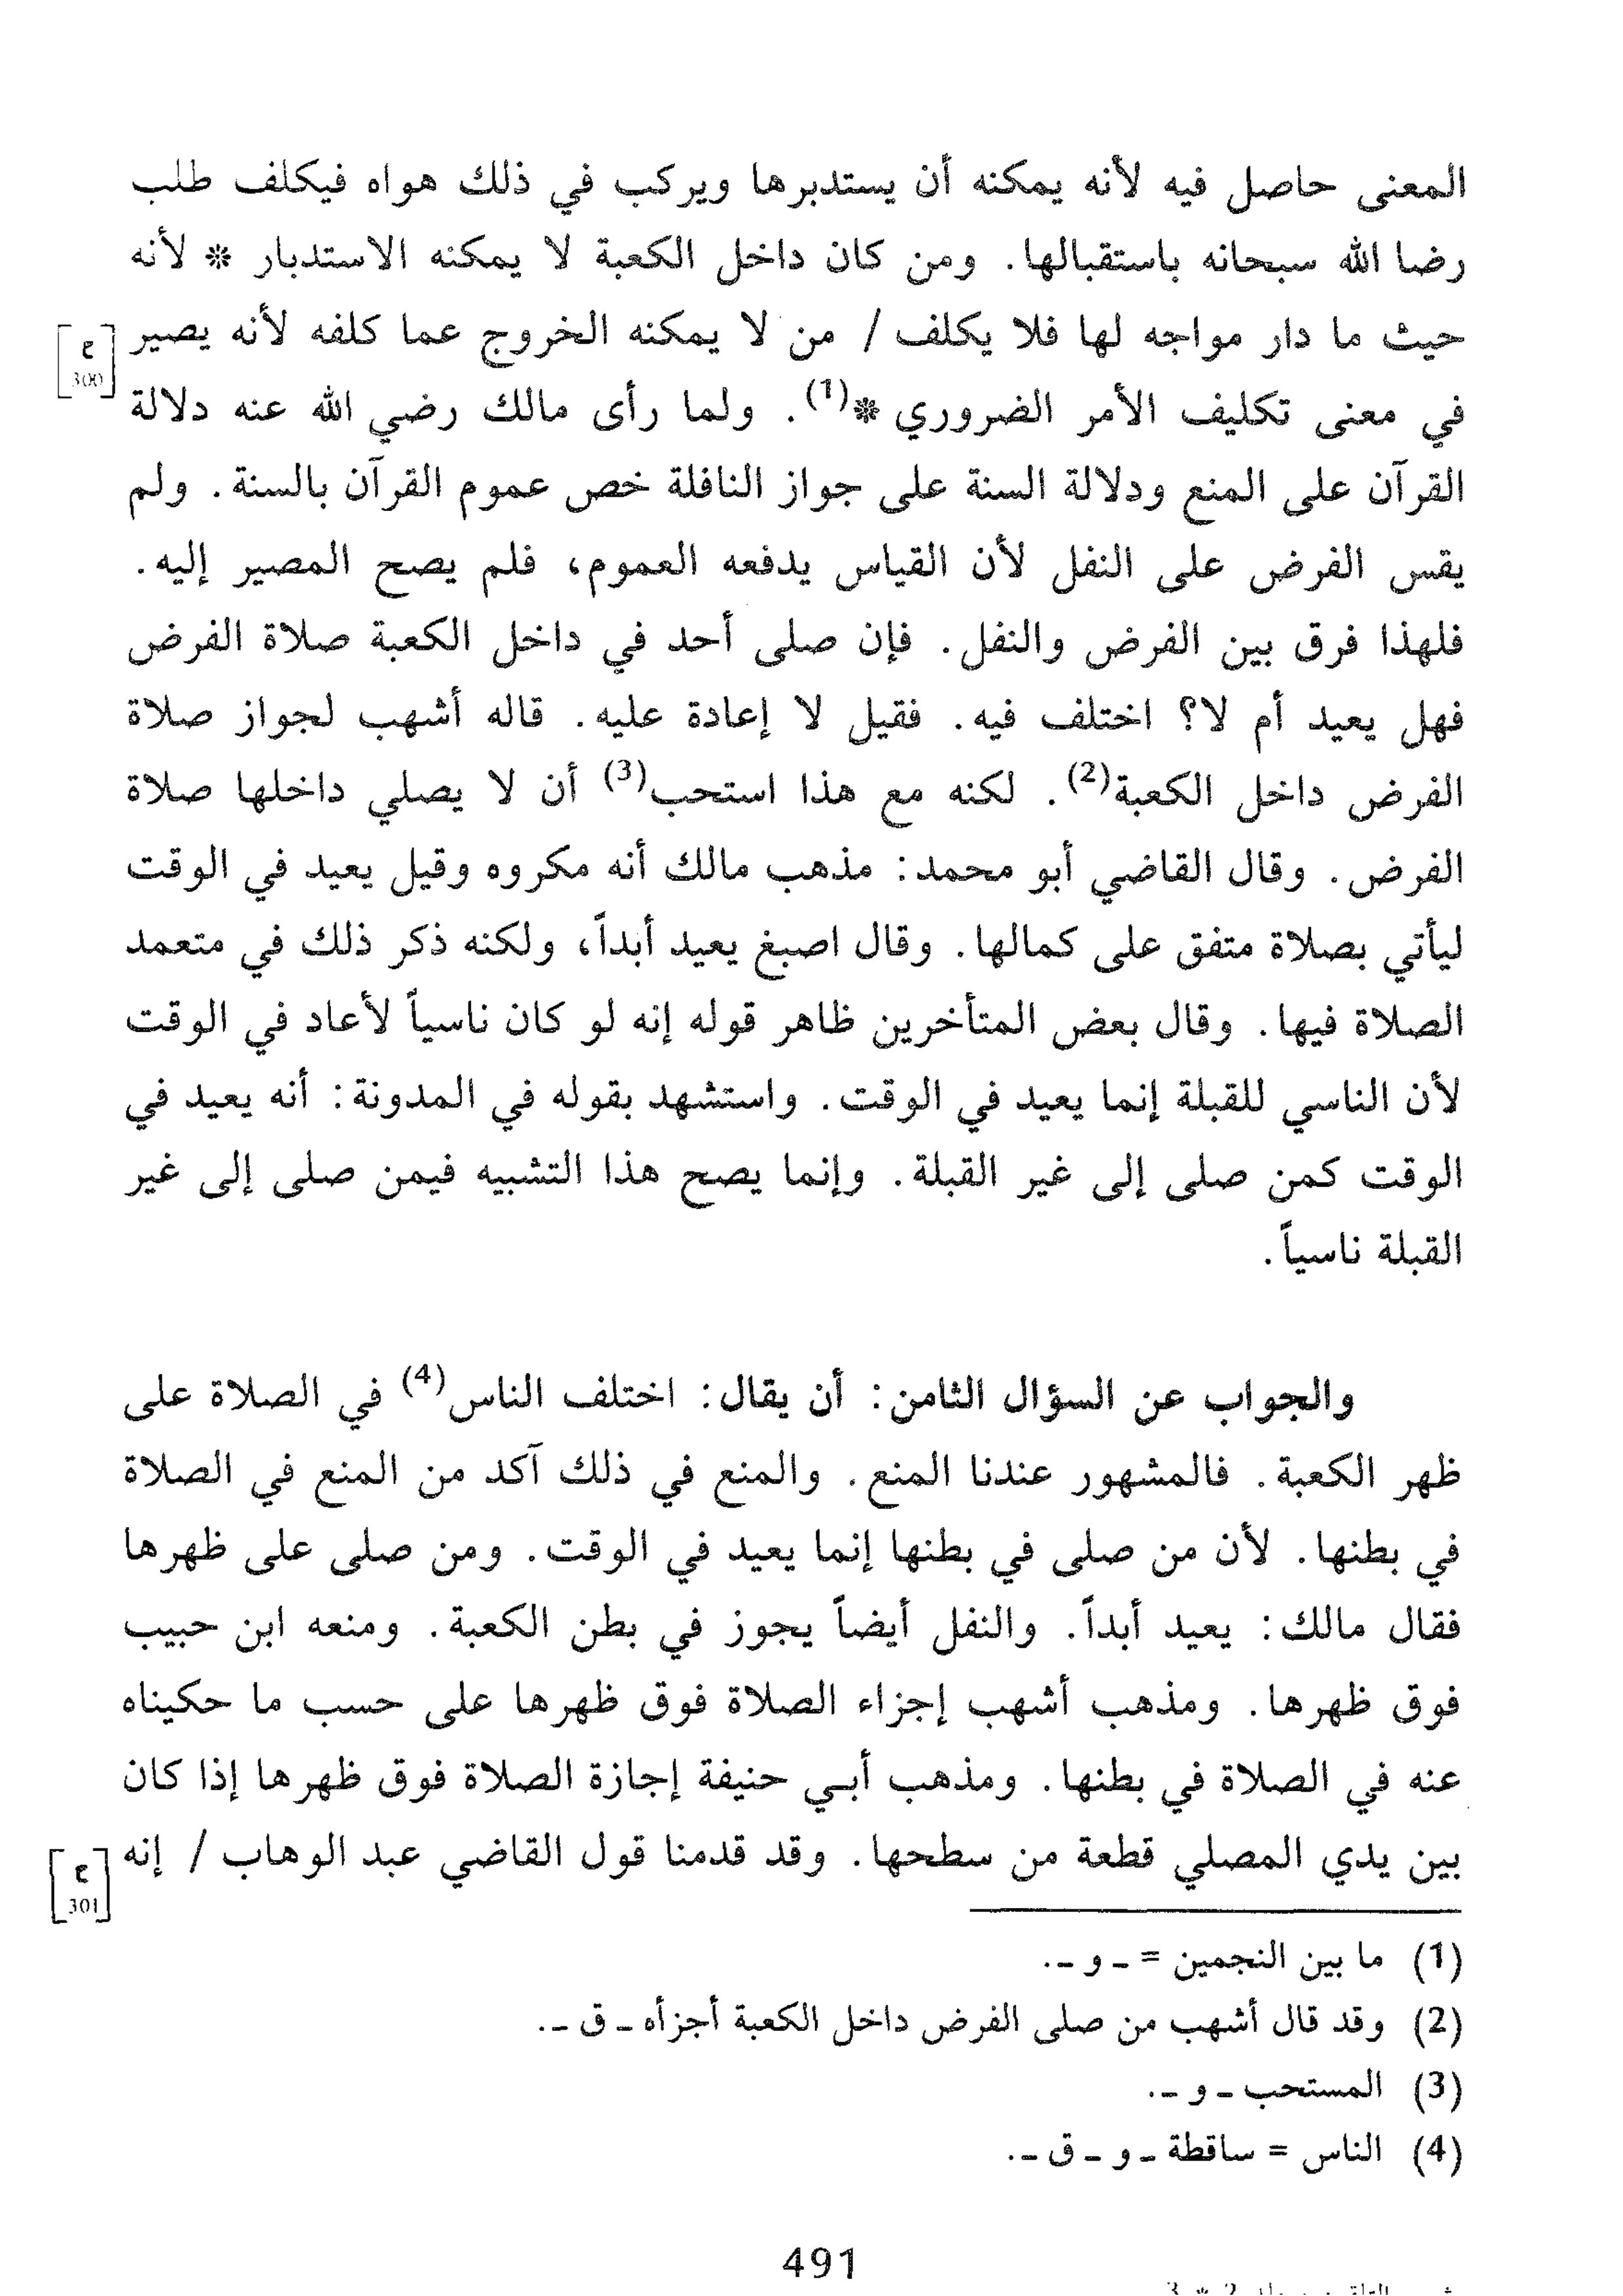 المعنى حاصل فيه لأنه يمكنه أن يستدبرها ويركب في ذلك هواه فيكلف طلب
رضا الله سبحانه باستقبالها. ومن كان داخل الكعبة لا يمكنه الاستدبار * لأنه
حيث ما دار مواجه لها فلا يكلف / من لا يمكنه الخروج عما كلفه لأنه يصير
[ع 300]
في معنى تكليف الأمر الضروري *(1). ولما رأى مالك رضي الله عنه دلالة
القرآن على المنع ودلالة السنة على جواز النافلة خص عموم القرآن بالسنة. ولم
يقس الفرض على النفل لأن القياس يدفعه العموم، فلم يصح المصير إليه.
فلهذا فرق بين الفرض والنفل. فإن صلى أحد في داخل الكعبة صلاة الفرض
فهل يعيد أم لا؟ اختلف فيه. فقيل لا إعادة عليه. قاله أشهب لجواز صلاة
الفرض داخل الكعبة(2). لكنه مع هذا استحب(3) أن لا يصلي داخلها صلاة
الفرض. وقال القاضي أبو محمد: مذهب مالك أنه مكروه وقيل يعيد في الوقت
ليأتي بصلاة متفق على كمالها. وقال اصبغ يعيد أبداً، ولكنه ذكر ذلك في متعمد
الصلاة فيها. وقال بعض المتأخرين ظاهر قوله إنه لو كان ناسياً لأعاد في الوقت
لأن الناسي للقبلة إنما يعيد في الوقت. واستشهد بقوله في المدونة: أنه يعيد في
الوقت كمن صلى إلى غير القبلة. وإنما يصح هذا التشبيه فيمن صلى إلى غير
القبلة ناسياً.
والجواب عن السؤال الثامن: أن يقال: اختلف الناس(4) في الصلاة على
ظهر الكعبة. فالمشهور عندنا المنع. والمنع في ذلك آكد من المنع في الصلاة
في بطنها. لأن من صلى في بطنها إنما يعيد في الوقت. ومن صلى على ظهرها
فقال مالك: يعيد أبداً. والنفل أيضاً يجوز في بطن الكعبة. ومنعه ابن حبيب
فوق ظهرها. ومذهب أشهب إجزاء الصلاة فوق ظهرها على حسب ما حكيناه
عنه في الصلاة في بطنها. ومذهب أبي حنيفة إجازة الصلاة فوق ظهرها إذا كان
بين يدي المصلي قطعة من سطحها. وقد قدمنا قول القاضي عبد الوهاب / إنه
[ع 301]
(1) ما بين النجمين = ـ و ـ.
(2) وقد قال أشهب من صلى الفرض داخل الكعبة أجزأه ـ ق ـ.
(3) المستحب ـ و ـ.
(4) الناس = ساقطة ـ و ـ ق ـ.
491